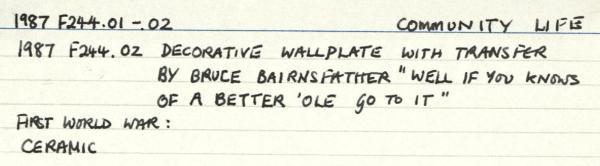 1987 F244.01 -.02 COMMUNITY LIFE
1987 F244.02 DECORATIVE WALLPLATE WITH TRANSFER
BY BRUCE BAIRNSFATHER "WELL IF YOU KNOWS
OF A BETTER 'OLE GO TO IT"
FIRST WORLD WAR:
CERAMIC